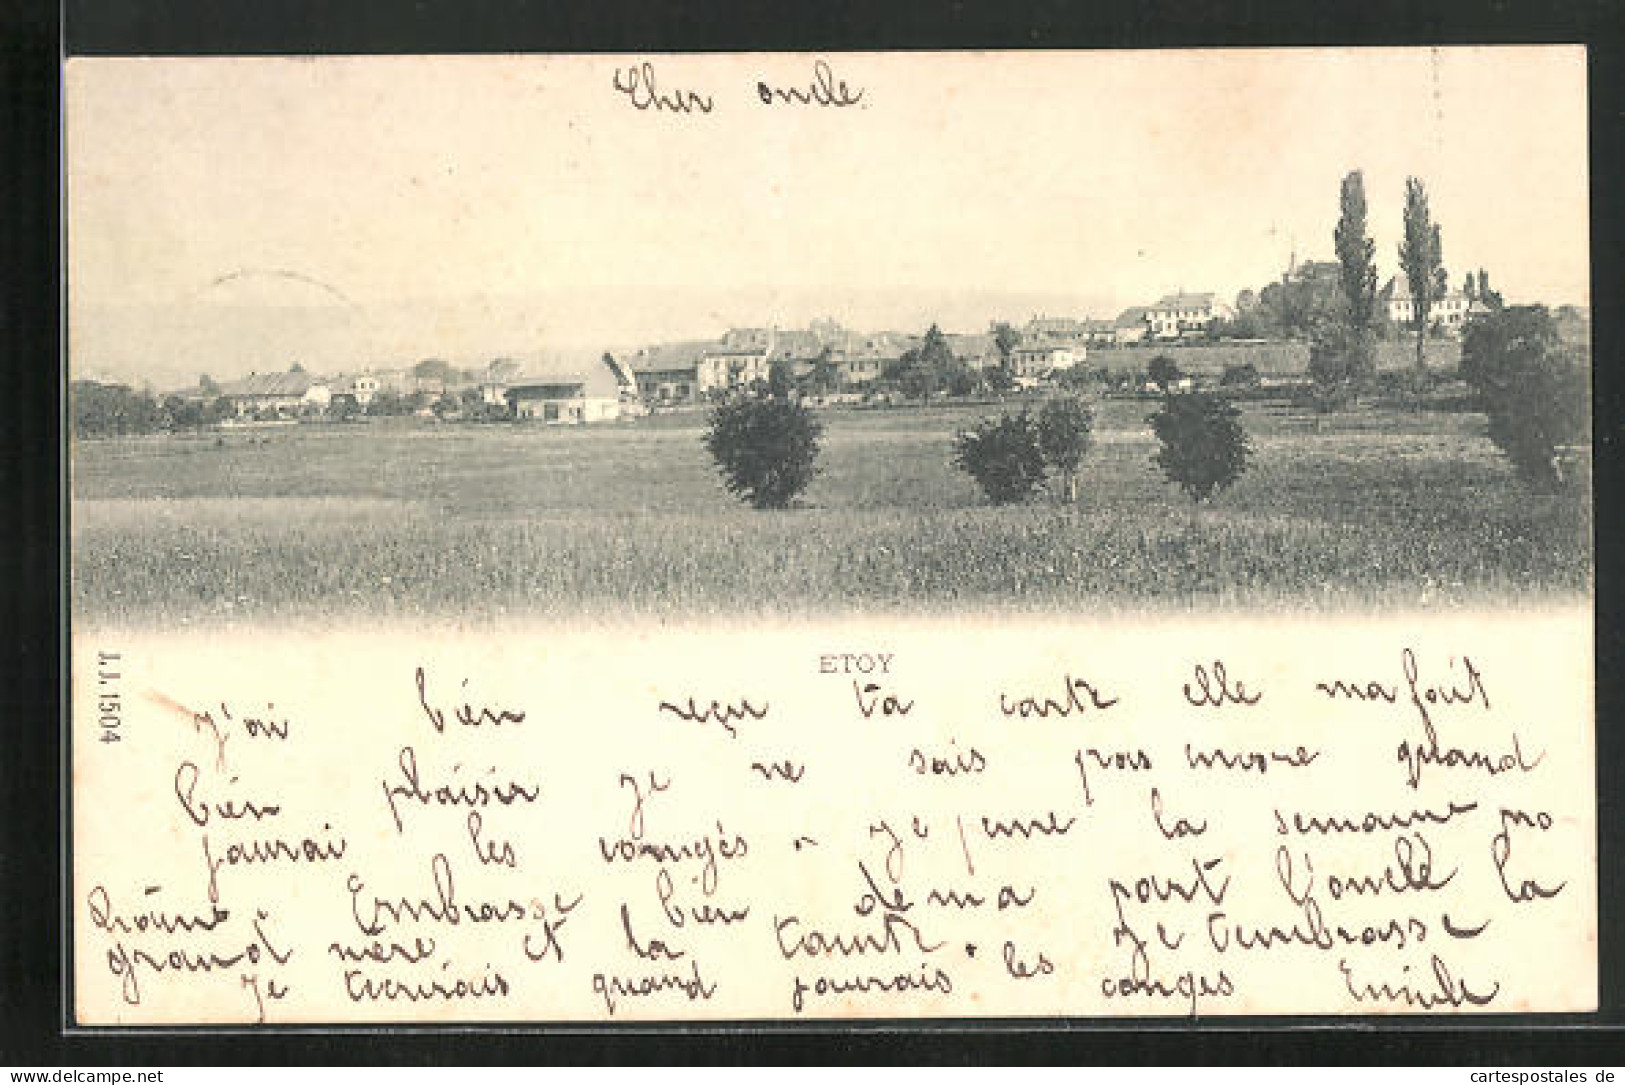 Cher oncle.
ETOY
J.J. 1504
J'ai bien reçu ta carte elle ma fait
bien plaisir je ne sais pas encore quand
jaurai les congés je pense la semaine pro
haine. Embrasse bien de ma part l'oncle la
grand mère et la tante. Je t'embrasse
Je t'ecrirais quand jaurais les conges Emile
cartespostales de
www.delcampe.net